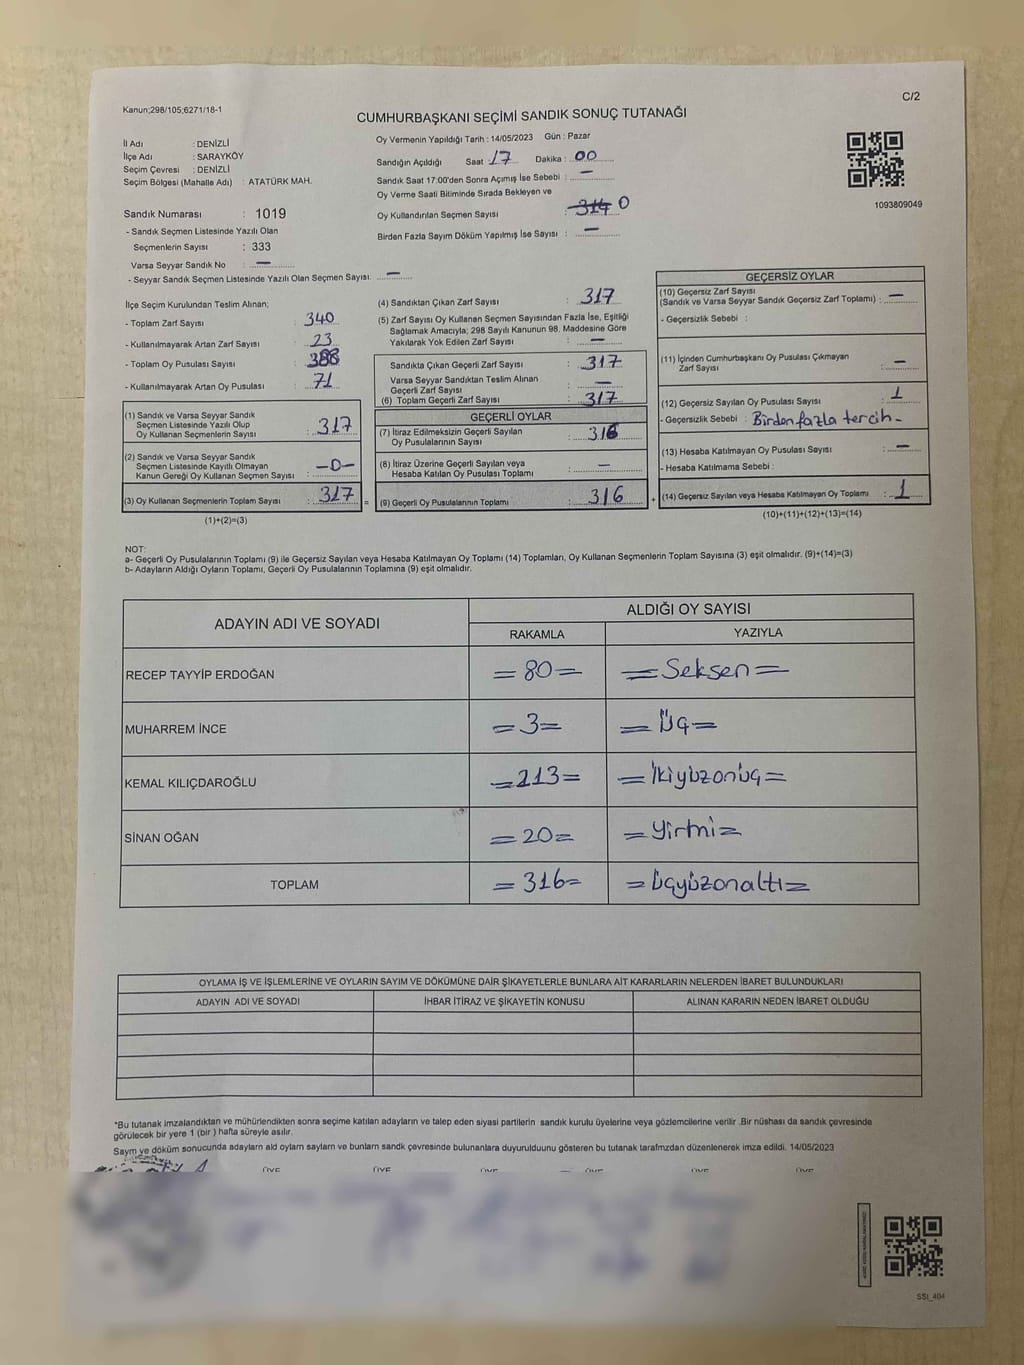 C/2
Kanun;298/105;6271/18-1
CUMHURBAŞKANI SEÇİMİ SANDIK SONUÇ TUTANAĞI
İl Adı : DENİZLİ
İlçe Adı : SARAYKÖY
Seçim Çevresi : DENİZLİ
Seçim Bölgesi (Mahalle Adı) : ATATÜRK MAH.
Sandık Numarası : 1019
- Sandık Seçmen Listesinde Yazılı Olan
Seçmenlerin Sayısı : 333
Varsa Seyyar Sandık No : —
- Seyyar Sandık Seçmen Listesinde Yazılı Olan Seçmen Sayısı. —
Oy Vermenin Yapıldığı Tarih : 14/05/2023 Gün : Pazar
Sandığın Açıldığı Saat : 17 Dakika : 00
Sandık Saat 17:00'den Sonra Açımış İse Sebebi : —
Oy Verme Saati Bitiminde Sırada Bekleyen ve
Oy Kullandırılan Seçmen Sayısı : 314 0
Birden Fazla Sayım Döküm Yapılmış İse Sayısı : —
1093809049
İlçe Seçim Kurulundan Teslim Alınan;
- Toplam Zarf Sayısı : 340
- Kullanılmayarak Artan Zarf Sayısı : 23
- Toplam Oy Pusulası Sayısı : 388
- Kullanılmayarak Artan Oy Pusulası : 71
(1) Sandık ve Varsa Seyyar Sandık
Seçmen Listesinde Yazılı Olup
Oy Kullanan Seçmenlerin Sayısı : 317
(2) Sandık ve Varsa Seyyar Sandık
Seçmen Listesinde Kayıtlı Olmayan
Kanun Gereği Oy Kullanan Seçmen Sayısı : —0—
(3) Oy Kullanan Seçmenlerin Toplam Sayısı : 317 =
(1)+(2)=(3)
(4) Sandıktan Çıkan Zarf Sayısı : 317
(5) Zarf Sayısı Oy Kullanan Seçmen Sayısından Fazla İse, Eşitliği
Sağlamak Amacıyla; 298 Sayılı Kanunun 98. Maddesine Göre
Yakılarak Yok Edilen Zarf Sayısı : —
Sandıkta Çıkan Geçerli Zarf Sayısı : 317
Varsa Seyyar Sandıktan Teslim Alınan
Geçerli Zarf Sayısı : —
(6) Toplam Geçerli Zarf Sayısı : 317
GEÇERLİ OYLAR
(7) İtiraz Edilmeksizin Geçerli Sayılan
Oy Pusulalarının Sayısı : 316
(8) İtiraz Üzerine Geçerli Sayılan veya
Hesaba Katılan Oy Pusulası Toplamı : —
(9) Geçerli Oy Pusulalarının Toplamı : 316 +
GEÇERSİZ OYLAR
(10) Geçersiz Zarf Sayısı
(Sandık ve Varsa Seyyar Sandık Geçersiz Zarf Toplamı) : —
- Geçersizlik Sebebi :
(11) İçinden Cumhurbaşkanı Oy Pusulası Çıkmayan
Zarf Sayısı : —
(12) Geçersiz Sayılan Oy Pusulası Sayısı : 1
- Geçersizlik Sebebi : Birden fazla tercih-
(13) Hesaba Katılmayan Oy Pusulası Sayısı : —
- Hesaba Katılmama Sebebi :
(14) Geçersiz Sayılan veya Hesaba Katılmayan Oy Toplamı : 1
(10)+(11)+(12)+(13)=(14)
NOT:
a- Geçerli Oy Pusulalarının Toplamı (9) ile Geçersiz Sayılan veya Hesaba Katılmayan Oy Toplamı (14) Toplamları, Oy Kullanan Seçmenlerin Toplam Sayısına (3) eşit olmalıdır. (9)+(14)=(3)
b- Adayların Aldığı Oyların Toplamı, Geçerli Oy Pusulalarının Toplamına (9) eşit olmalıdır.
ADAYIN ADI VE SOYADI
ALDIĞI OY SAYISI
RAKAMLA YAZIYLA
RECEP TAYYİP ERDOĞAN =80= =Seksen=
MUHARREM İNCE =3= =Üç=
KEMAL KILIÇDAROĞLU =213= =İkiyüzonüç=
SİNAN OĞAN =20= =Yirmi=
TOPLAM =316= =Üçyüzonaltı=
OYLAMA İŞ VE İŞLEMLERİNE VE OYLARIN SAYIM VE DÖKÜMÜNE DAİR ŞİKAYETLERLE BUNLARA AİT KARARLARIN NELERDEN İBARET BULUNDUKLARI
ADAYIN ADI VE SOYADI İHBAR İTİRAZ VE ŞİKAYETİN KONUSU ALINAN KARARIN NEDEN İBARET OLDUĞU
*Bu tutanak imzalandıktan ve mühürlendikten sonra seçime katılan adayların ve talep eden siyasi partilerin sandık kurulu üyelerine veya gözlemcilerine verilir .Bir nüshası da sandık çevresinde
görülecek bir yere 1 (bir ) hafta süreyle asılır.
Saym ve döküm sonucunda adaylarn ald oylarn saylarn ve bunlarn sandk çevresinde bulunanlara duyurulduunu gösteren bu tutanak tarafmzdan düzenlenerek imza edildi. 14/05/2023
ÜYE ÜYE ÜYE ÜYE ÜYE ÜYE
SSt_404